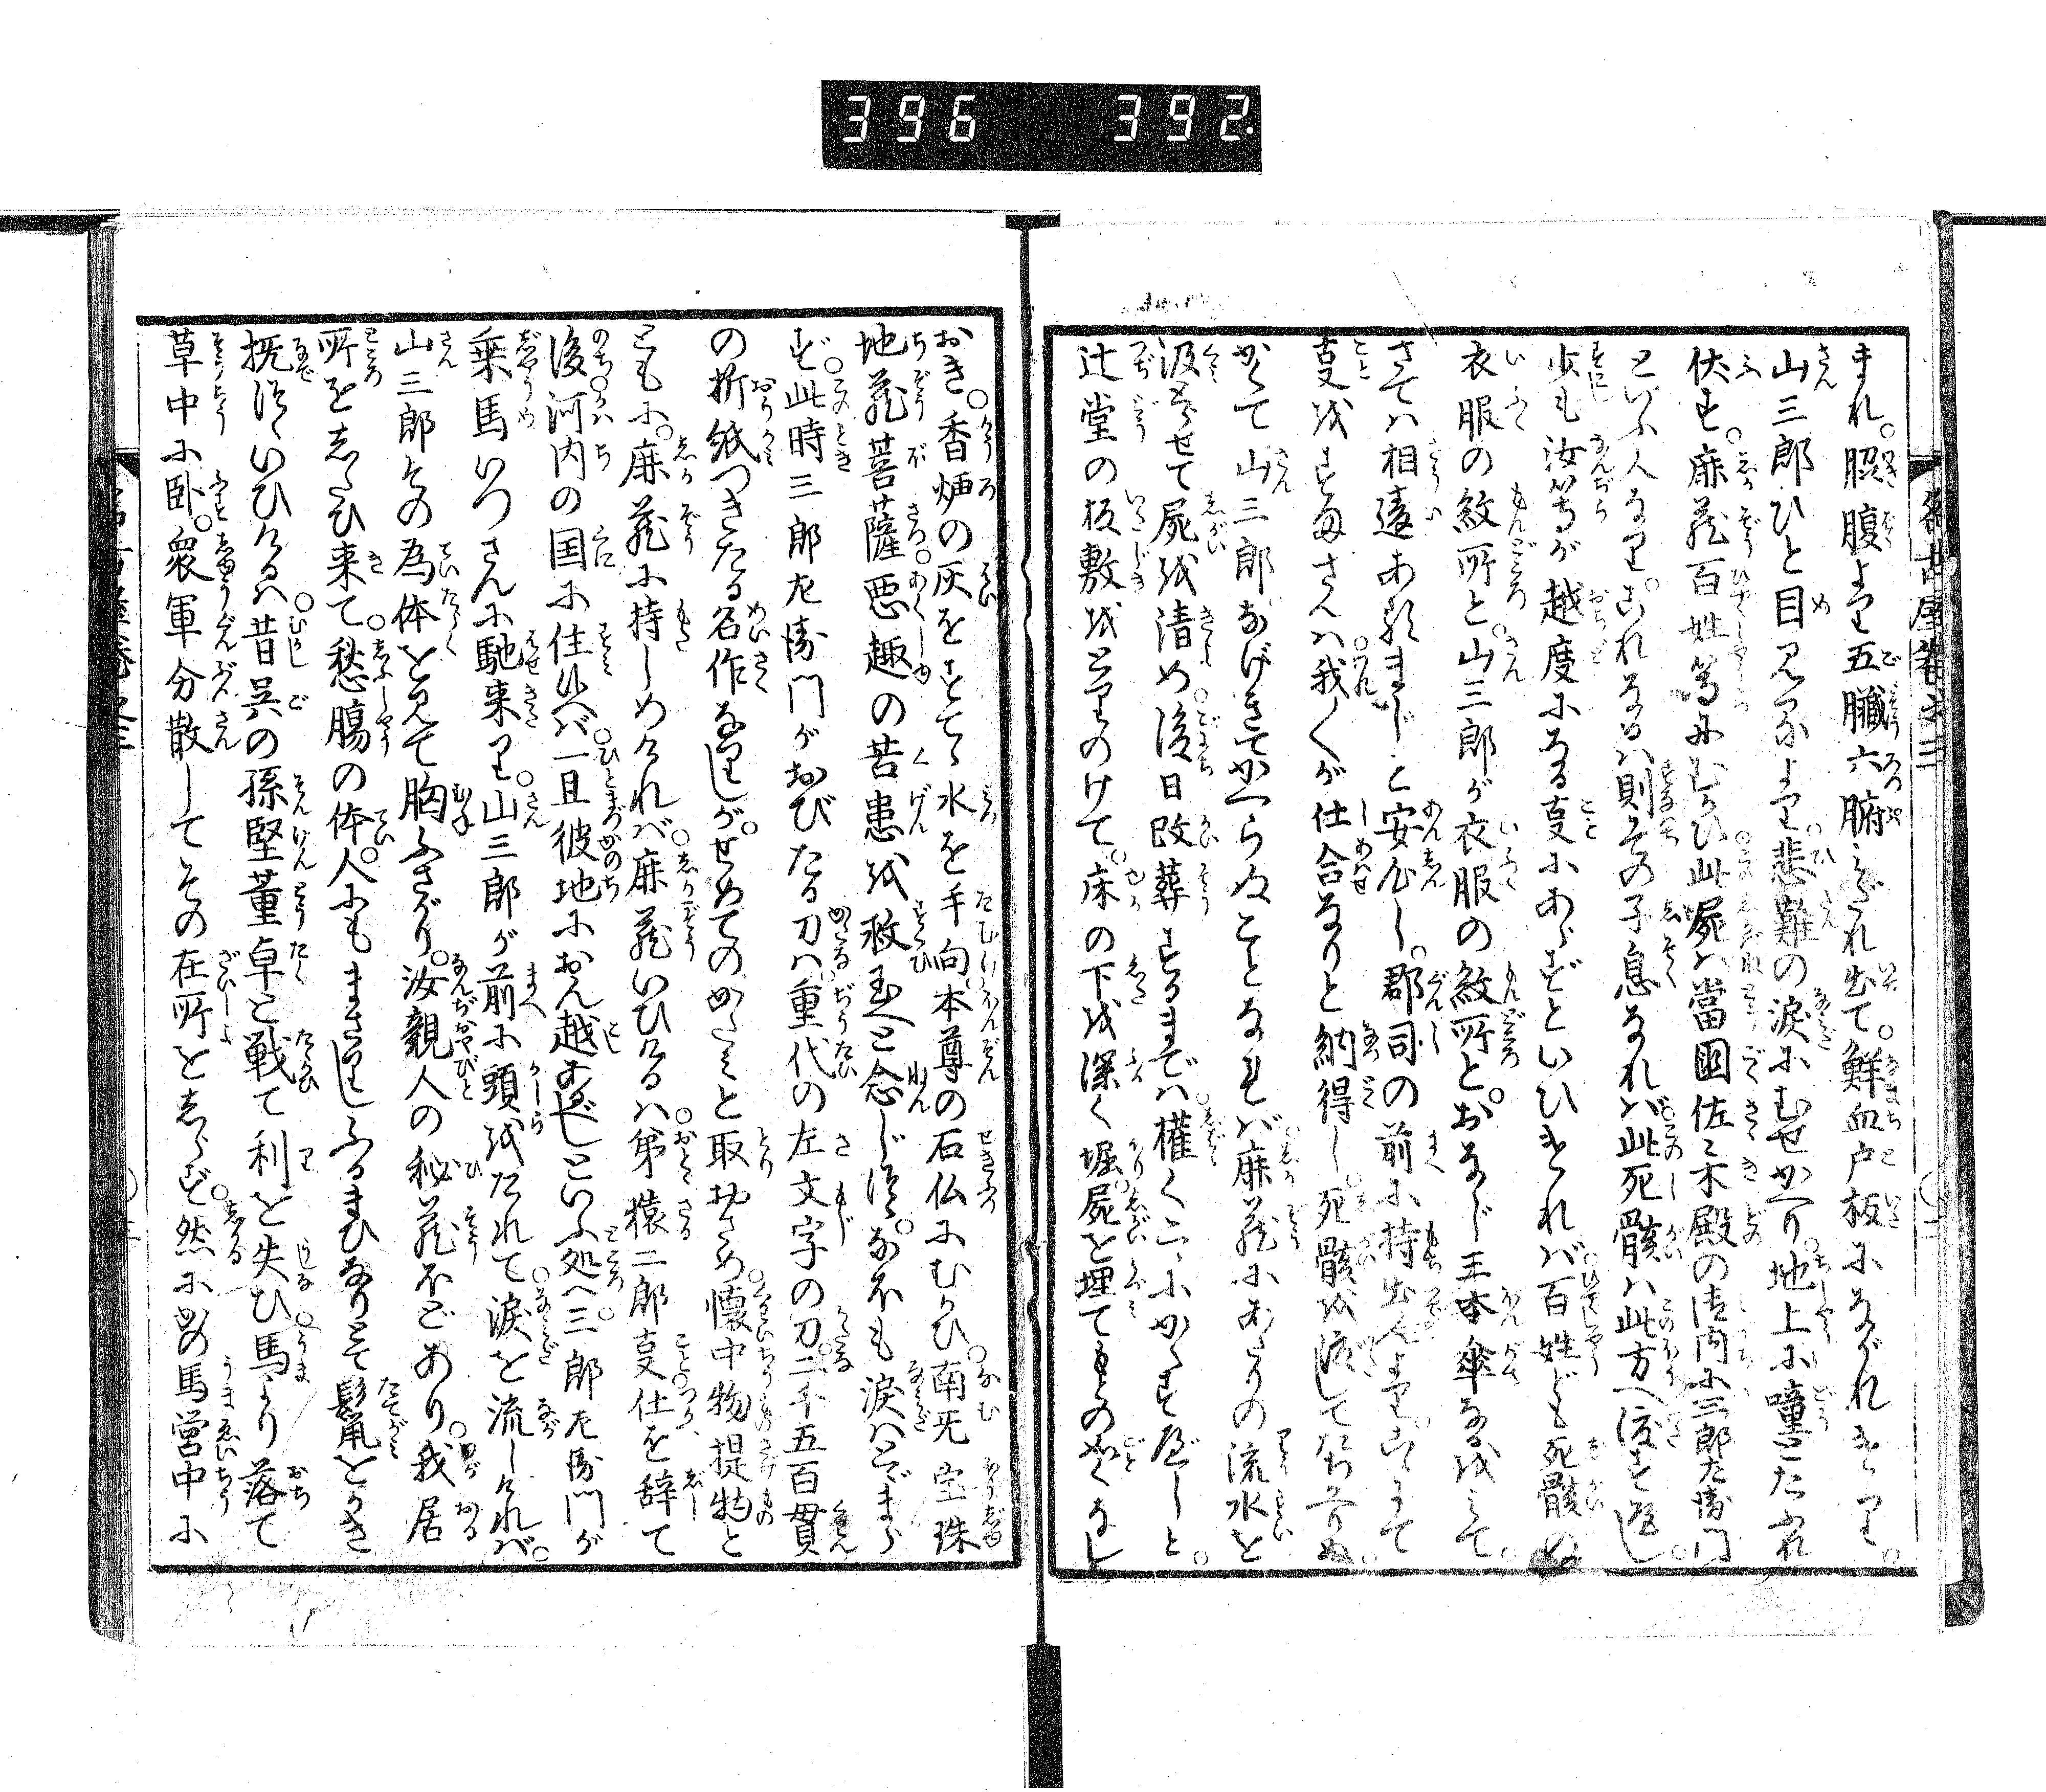 396 392.
まれ。脇腹より五臓六腑みだれ出て。鮮血戸板にながれけり。
山三郎ひと目見るより。悲難の涙にむせかへり。地上に噇とたふれ
伏す。鹿蔵百姓等にむかひ此屍ハ當国佐々木殿の御内に三郎左衛門
といふ人なり。これなるハ則その子息なれバ。此死骸ハ此方へ渡せ。返し
少も汝等が越度になる事にあらずといひけれバ。百姓ども死骸の
衣服の紋所と。山三郎が衣服の紋所と。おなじ三本傘なるをみて。
さてハ相違あるまじと安心し。郡司の前に持出んより。こゝにて
事をすまさんハ。我〳〵が仕合なりと納得し。死骸を渡してたち去りぬ。
かくて山三郎なげきてかへらぬことなれバ。鹿蔵にあたりの流水を
汲よせて屍を清め。後日改葬するまでハ。權くこゝにかくすべしと。
辻堂の板敷をとりのけて。床の下を深く堀。屍を埋てもとの如くなし
おき。香炉の灰をすてゝ水を手向。本尊の石仏にむかひ。南無宝珠
地蔵菩薩。悪趣の苦患を救玉へと念じつゝ。なほも涙ハとゞまら
ず。此時三郎左衛門がおびたる刀ハ。重代の左文字の刀。二千五百貫
の折紙つきたる名作なりしが。せめてのかたみと取おさめ。懐中物提物と
ともに。鹿蔵に持しめけれバ。鹿蔵いひけるハ。弟猿二郎事仕を辞て
後。河内の国に住候へバ。一旦彼地におん越あるべしといふ処へ。三郎左衛門が
乗馬いつさんに馳来り。山三郎が前に頭をたれて。涙を流しけれバ。
山三郎その為体を見て胸ふさがり。汝親人の秘蔵ほどあり。我居
所をしたひ来て。愁腸の体。人にもまさりしふるまひなりとて。鬣をかき
撫つゝいひけるハ。昔呉の孫堅董卓と戦て利を失ひ。馬より落て
草中に臥。衆軍分散してその在所をしらず。然にかの馬営中に